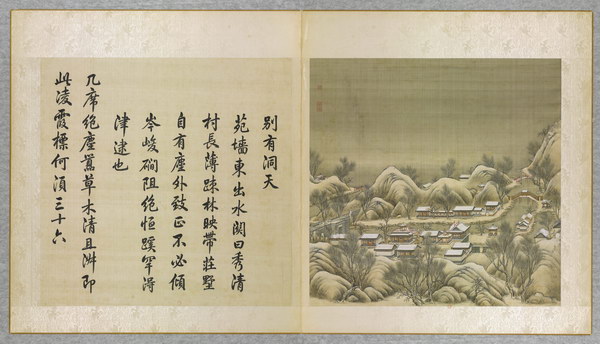 別有洞天
苑墻東出水關曰秀清
村長薄疎林映帶莊墅
自有塵外致正不必傾
岑峻磵阻絶恒蹊罕得
津逮也
几席絶塵嚻草木清且淑即
此凌霞標何須三十六